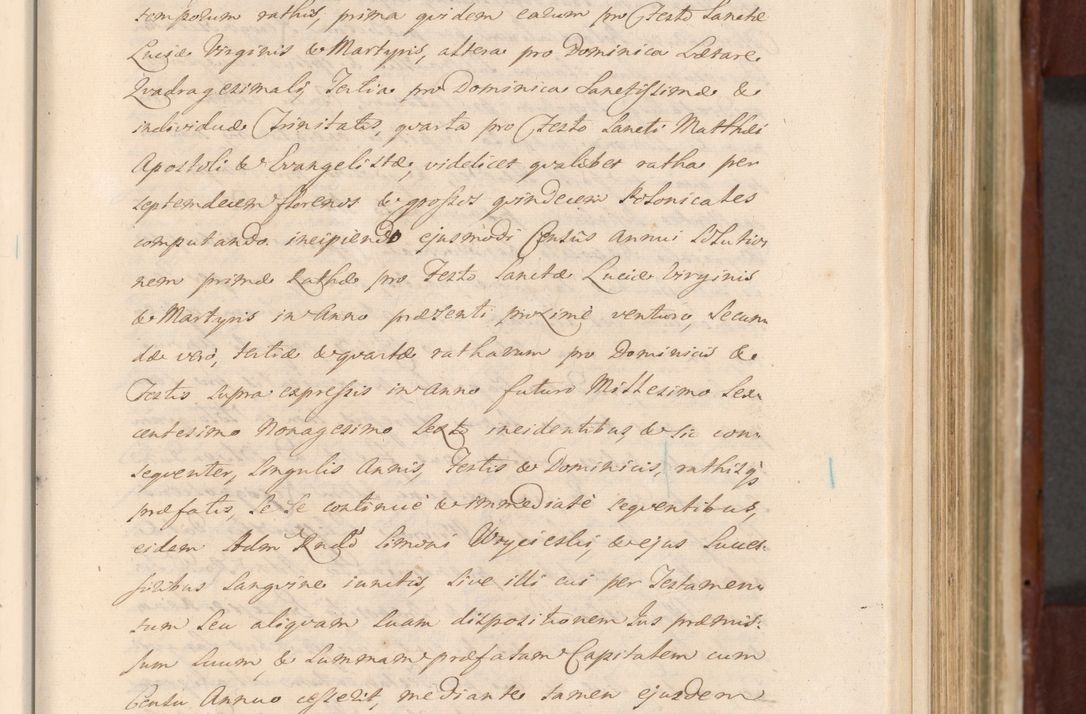 temporum rathis, prima quidem earum pro Festo Sanctæ
Luciæ Virginis & Martyris, altera pro Dominica Lætare
Quadragesimali, Tertia pro Dominica Sanctissimæ &
individuæ Trinitatis, quarta pro Festo Sancti Matthæi
Apostoli & Evangelistæ, videlicet qualibet ratha per
septemdecem florenos & grossos quindecem Polonicales
computando incipiendo ejusmodi Censûs annui solutio-
nem primæ Rathæ pro Festo Sanctæ Luciæ Virginis
& Martyris in Anno præsenti proximè venturo, Secun-
dæ verò, tertiæ & quartæ ratharum pro Dominicis &
Festis supra expressis in Anno futuro Millesimo Sex-
centesimo Nonagesimo Sexto incidentibus & sic con-
sequenter, singulis Annis, Festis & Dominicis, rathisq̃
præfatis, se se continuè & immediatè sequentibus,
eidem Adm Rndo Simoni Woycieski, & ejus Succes-
soribus Sanguine iunctis, sive illi cui per Testamen-
tum seu aliquam suam dispositionem Jus præmis-
sum suum & Summam præfatam Capitalem cum
Censu Annuo cesserit, mediante tamen ejusdem